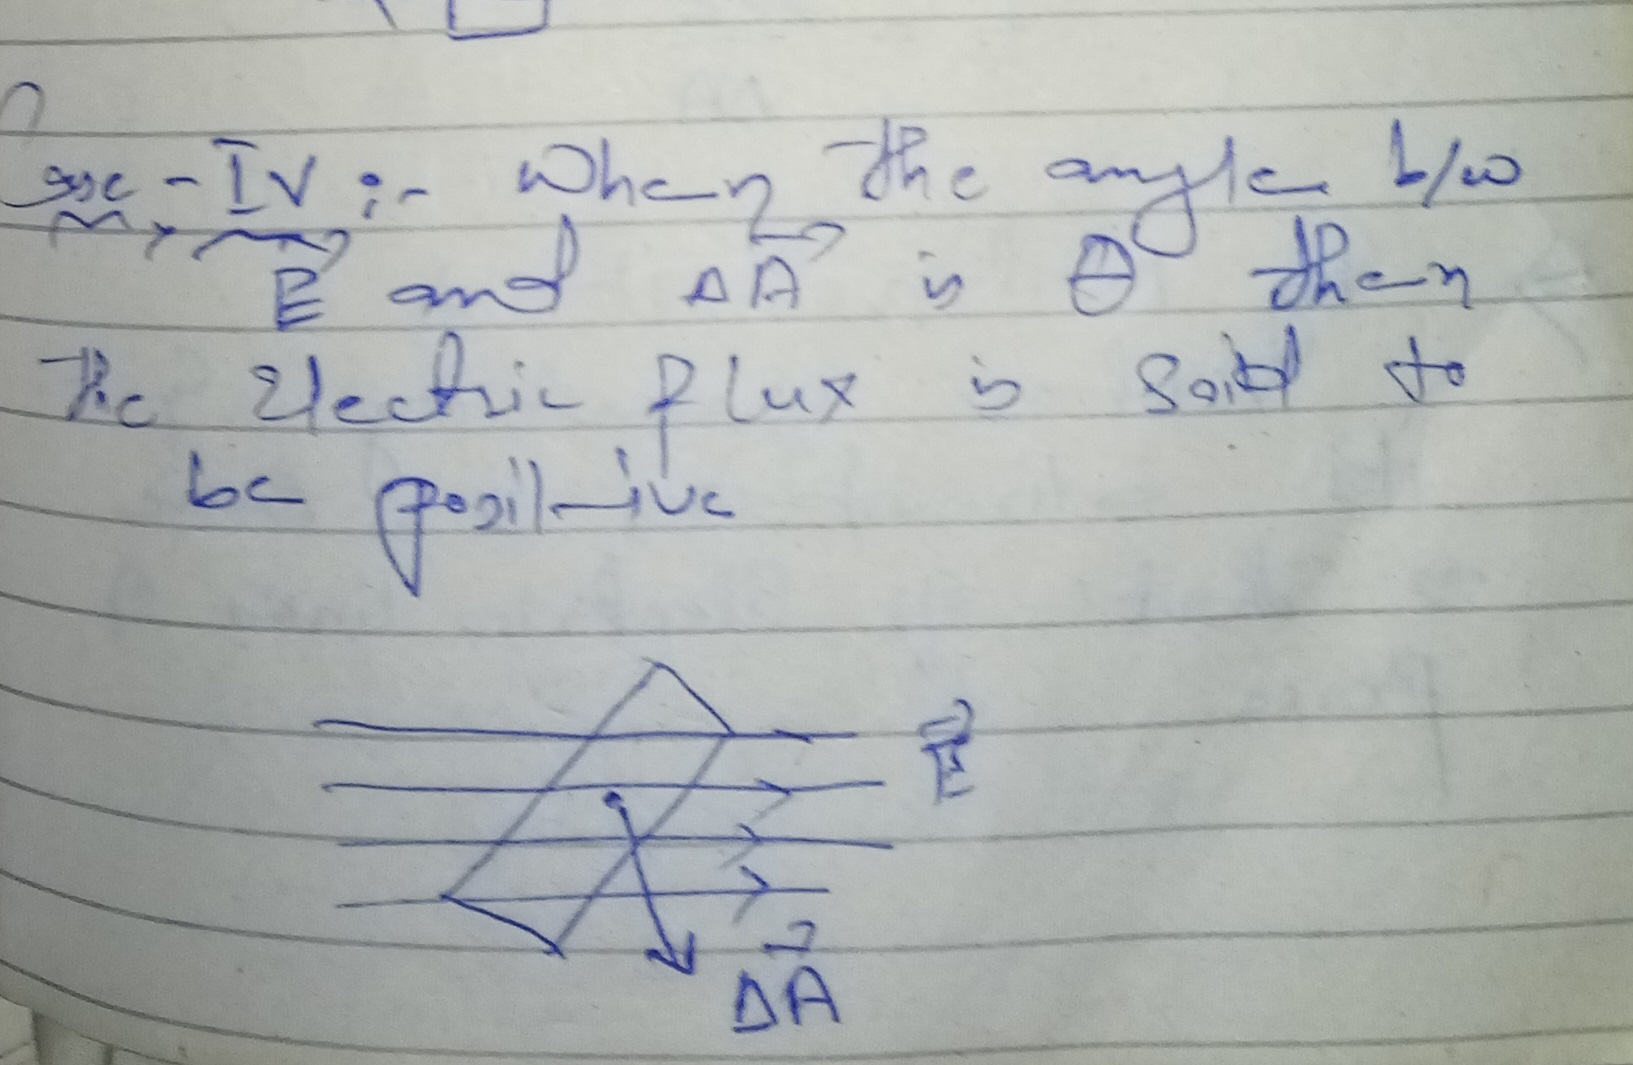 - IV :- When the angle b/w
E⃗ and ΔA⃗ is θ then
The Electric flux is said to
be positive
E⃗
ΔA⃗